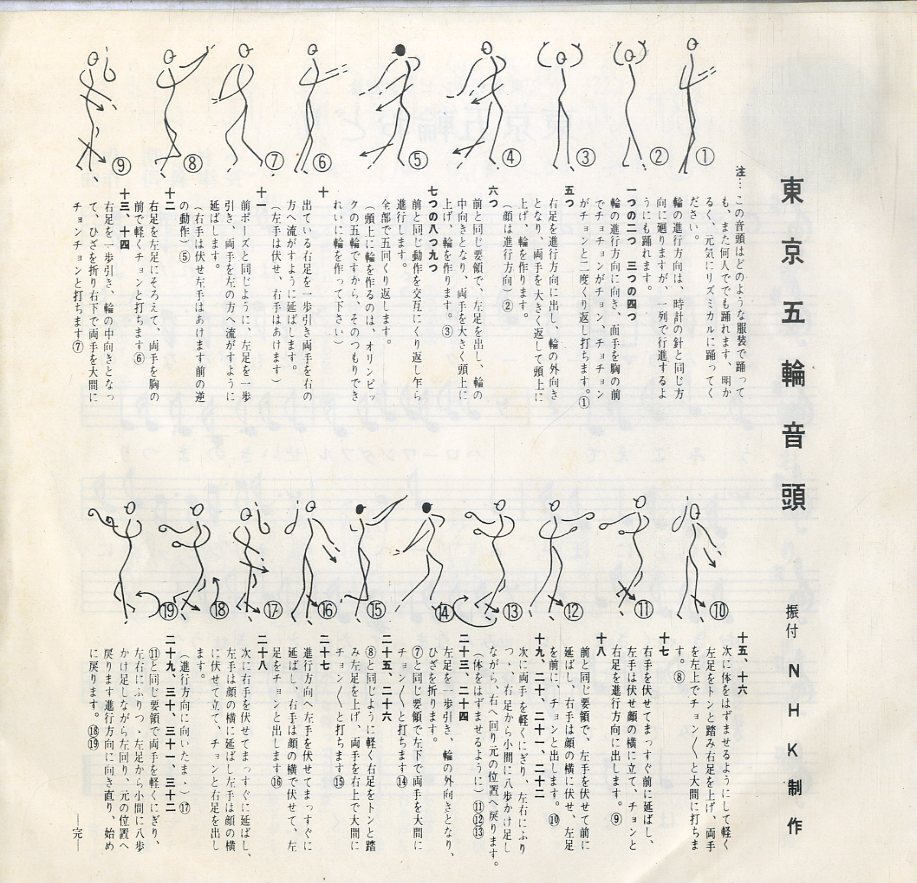 東京五輪音頭
振付 NHK制作
①
②
③
④
⑤
⑥
⑦
⑧
⑨
注…この音頭はどのような服装で踊って
も、また何人ででも踊れます、明か
るく、元気にリズミカルに踊ってく
ださい。
輪の進行方向は、時計の針と同じ方
向に廻りますが、一列で行進するよ
うにも踊れます。
一つの二つ 三つの四つ
輪の進行方向に向き、両手を胸の前
でチョチョンがチョン、チョチョン
がチョンと二度くり返し打ちます。①
五つ
右足を進行方向に出し、輪の外向き
となり、両手を大きく返して頭上に
上げ、輪を作ります。
(顔は進行方向)②
六つ
前と同じ要領で、左足を出し、輪の
中向きとなり、両手を大きく頭上に
上げ、輪を作ります。③
七つの八つ九つ
前と同じ動作を交互にくり返し乍ら
進行します。
全部で五回くり返します。
(頭上に輪を作るのは、オリンピッ
クの五輪ですから、そのつもりでき
れいに輪を作って下さい)
十
出ている右足を一歩引き両手を右の
方へ流がすように延ばします。
(左手は伏せ、右手はあけます)
十一
前ポーズと同じように、左足を一歩
引き、両手を左の方へ流がすように
延ばします。
(右手は伏せ左手はあけます前の逆
の動作)⑤
十二
右足を左足にそろえて、両手を胸の
前で軽くチョンと打ちます⑥
十三、十四
右足を一歩引き、輪の中向きとなっ
て、ひざを折り右下で両手を大間に
チョンチョンと打ちます⑦
⑩
⑪
⑫
⑬
⑭
⑮
⑯
⑰
⑱
⑲
十五、十六
次に体をはずませるようにして軽く
左足をトンと踏み右足を上げ、両手
を左上でチョン〱と大間に打ちま
す。⑧
十七
右手を伏せてまっすぐ前に延ばし、
左手は伏せ顔の横に立て、チョンと
右足を進行方向に出します。⑨
十八
前と同じ要領で、左手を伏せて前に
延ばし、右手は顔の横に伏せ、左足
を前に、チョンと出します。⑩
十九、二十、二十一、二十二
次に両手を軽くにぎり、左右にふり
つつ、右足から小間に八歩かけ足し
ながら、右へ回り元の位置へ戻ります。
(体をはずませるように)⑪⑫⑬
二十三、二十四
左足を一歩引き、輪の外向きとなり、
ひざを折ります。
⑦と同じ要領で左下で両手を大間に
チョン〱と打ちます⑭
二十五、二十六
⑧と同じように軽く右足をトンと踏
み左足を上げ、両手を右上で大間に
チョン〱と打ちます⑮
二十七
進行方向へ左手を伏せてまっすぐに
延ばし、右手は顔の横で伏せて、左
足をチョンと出します⑯
二十八
次に右手を伏せてまっすぐに延ばし、
左手は顔の横に延ばし左手は顔の横
に伏せて立て、チョンと右足を出し
ます。
(進行方向に向いたまゝ)⑰
二十九、三十、三十一、三十二
⑪と同じ要領で両手を軽くにぎり、
左右にふりつゝ左足から小間に八歩
かけ足しながら左回り、元の位置へ
戻ります進行方向に向き直り、始め
に戻ります。⑱⑲
—完—